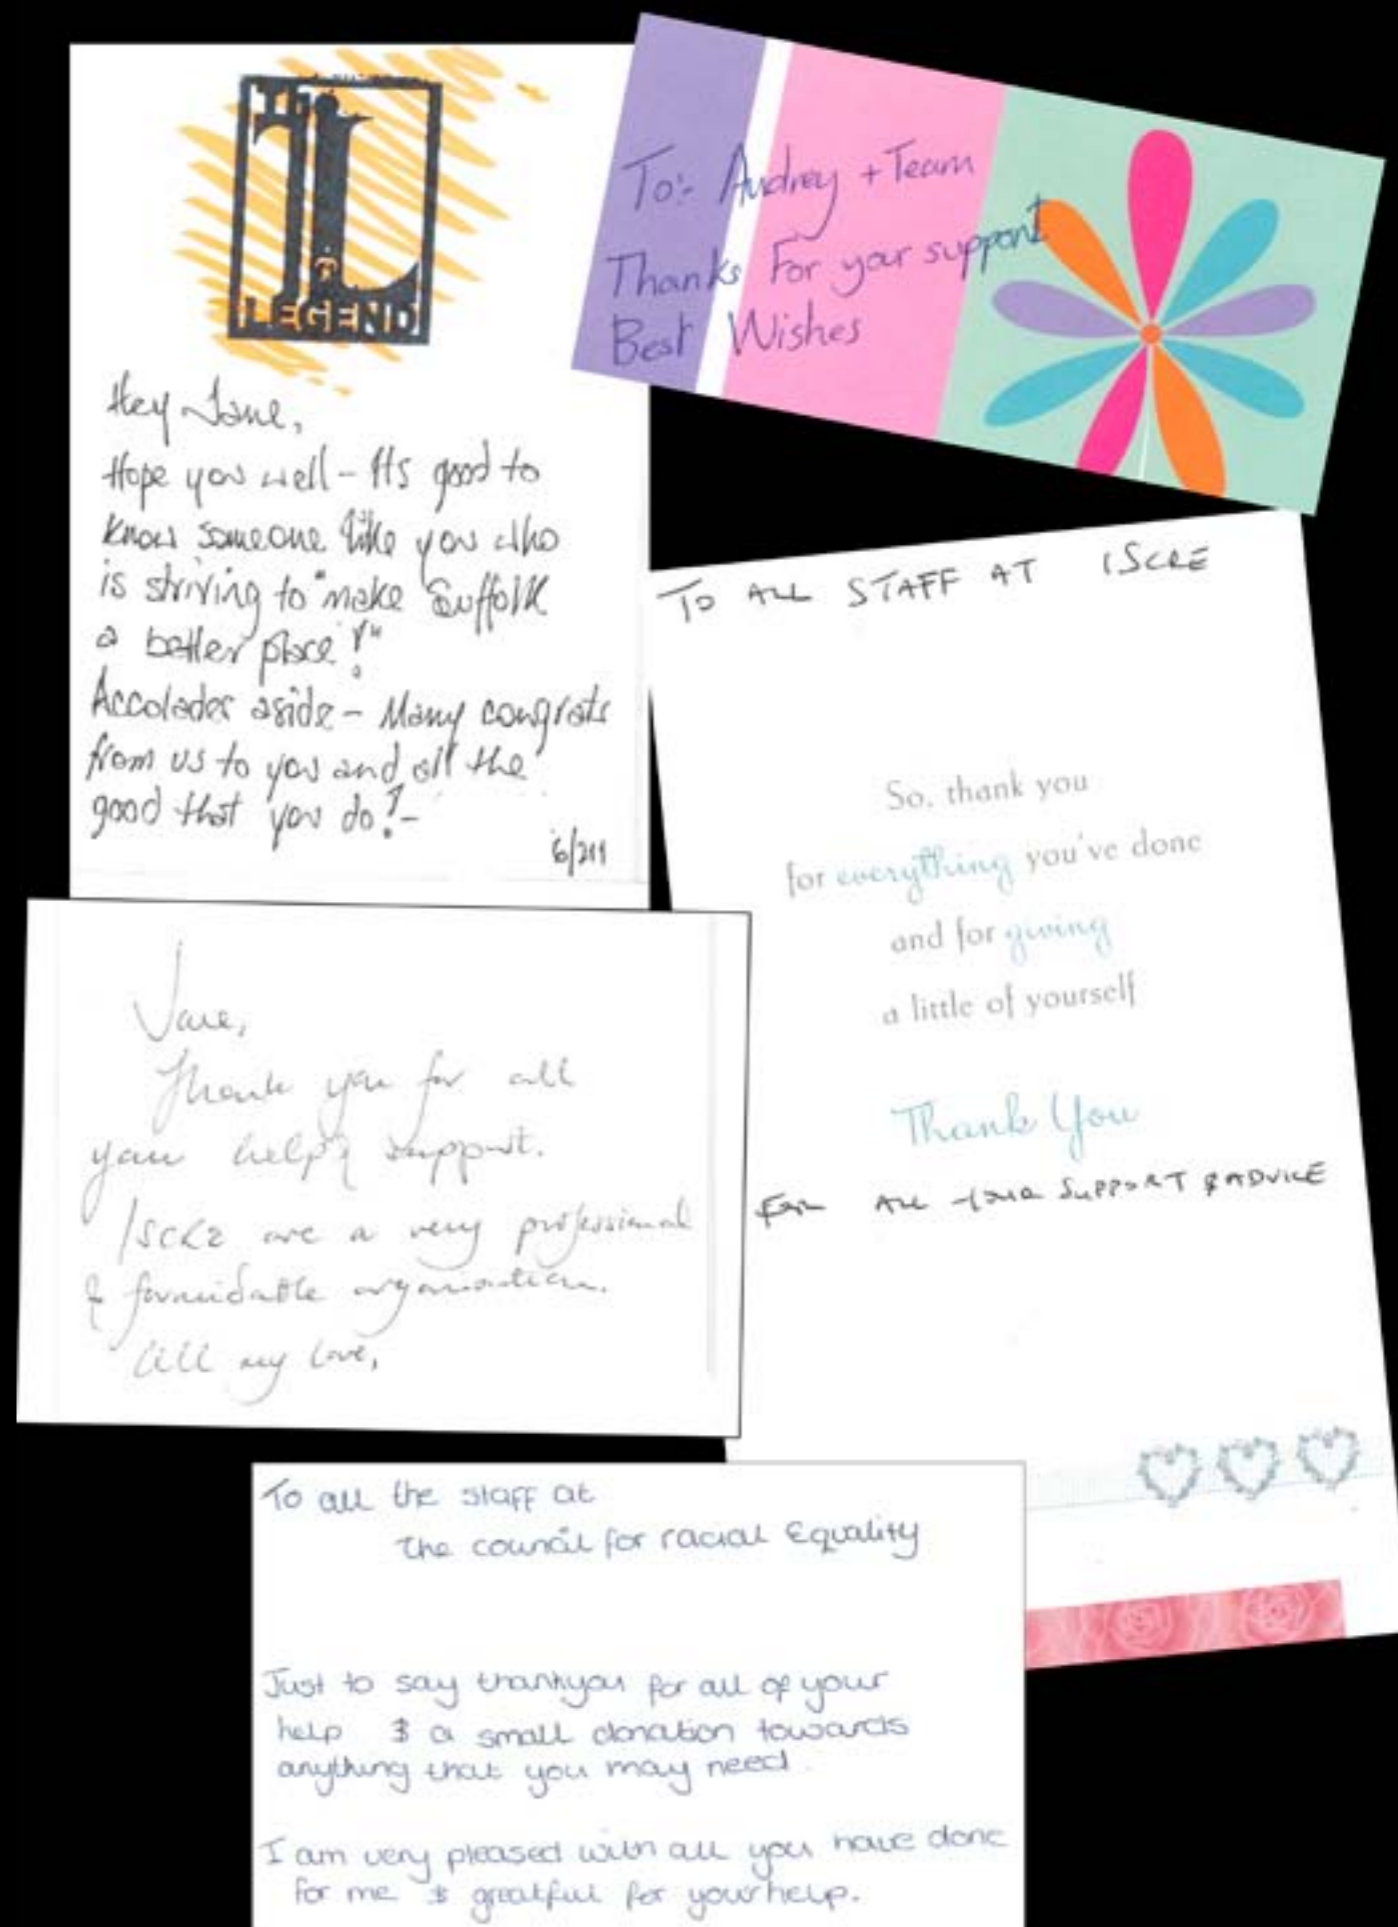 The
L
LEGEND
Hey Jane,
Hope you well - Its good to
know someone like you who
is striving to "make Suffolk
a better place!"
Accolades aside - Many congrats
from us to you and all the
good that you do! -
To:- Audrey + Team
Thanks For your support
Best Wishes
TO ALL STAFF AT ISCRE
So, thank you
for everything you've done
and for giving
a little of yourself
Thank You
FOR ALL YOUR SUPPORT & ADVICE
Jane,
Thank you for all
your help & support.
ISCRE are a very professional
& formidable organisation.
All my love,
To all the staff at
the council for racial Equality
Just to say thankyou for all of your
help & a small donation towards
anything that you may need.
I am very pleased with all you have done
for me & greatful for your help.